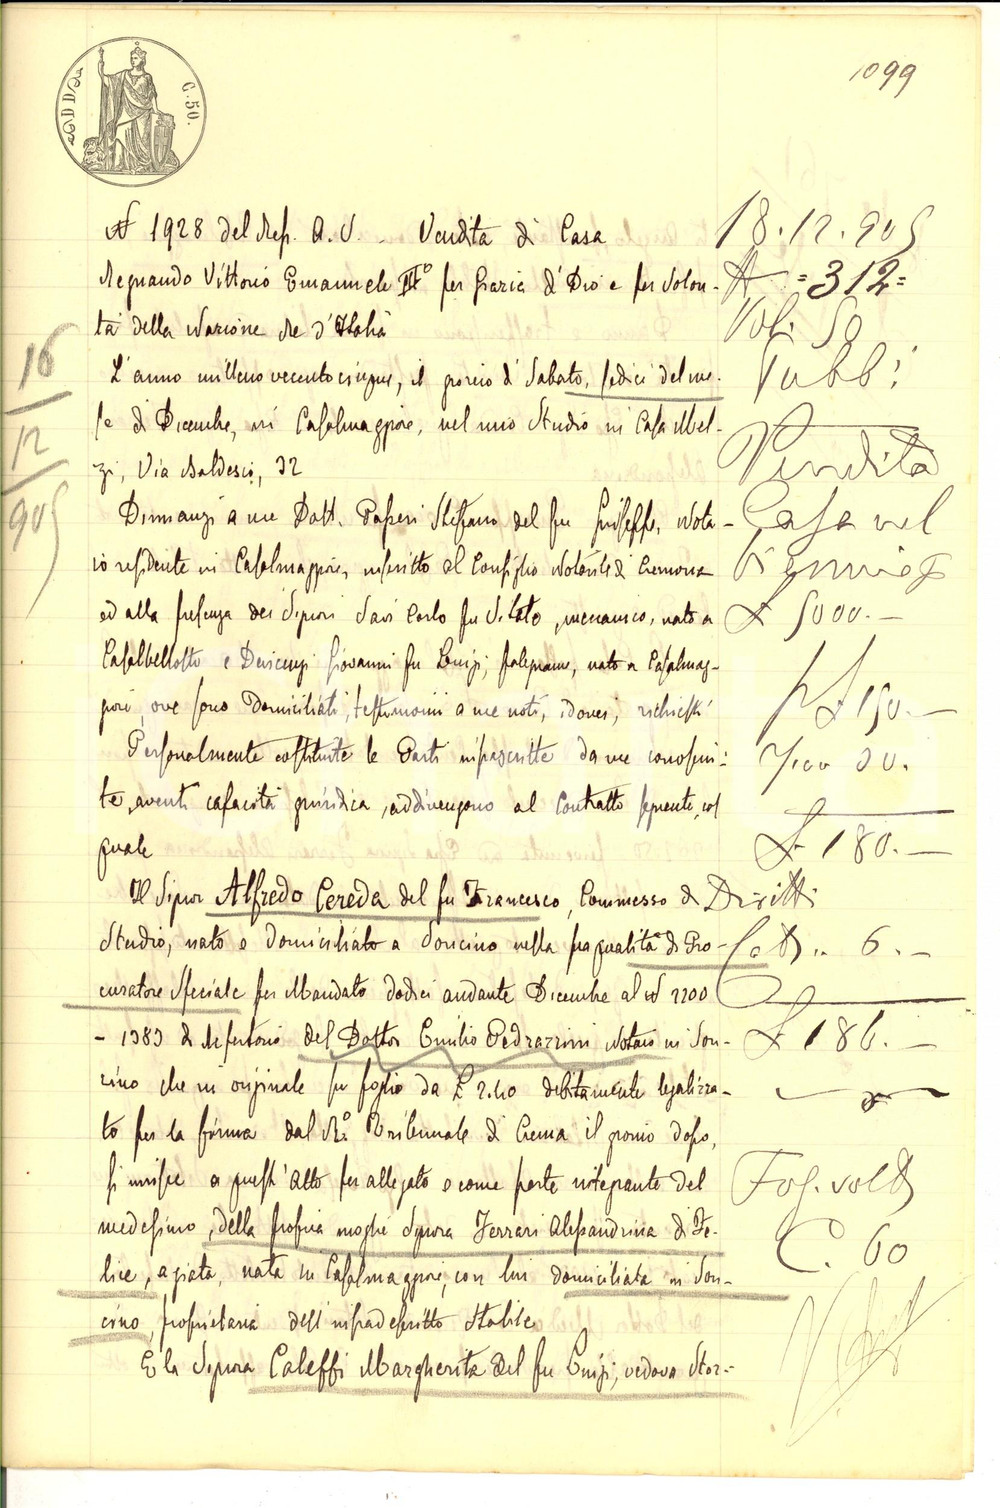 1099
C. 50.
N 1928 del Rep. A. V. - Vendita di Casa
Regnando Vittorio Emanuele III° per Grazia di Dio e per Volon-
tà della Nazione Re d'Italia
L'anno millenovecentocinque, il giorno di Sabato, sedici del me-
se di Dicembre, in Casalmaggiore, nel mio Studio in Casa Mel-
zi, Via Baldesio, 32
Dinnanzi a me Dott. Passeri Steffano del fu Giuseppe, Nota-
io residente in Casalmaggiore, inscritto al Consiglio Notarile di Cremona
ed alla presenza dei Signori Savi Carlo fu, meccanico, nato a
Casalbellotto e Giovanni fu Luigi, falegname, nato a Casalmag-
giore, ove sono domiciliati, testimonii a me noti, idonei, richiesti
Personalmente costituite le Parti infrascritte da me conosciu-
te, aventi capacità giuridica, addivengono al Contratto seguente, col
quale
Il Signor Alfredo Cereda del fu Francesco, Commesso di
Studio, nato e domiciliato a Soncino nella sua qualità di Pro-
curatore Speciale per Mandato dodici andante Dicembre al N 2200
- 1383 di Repertorio del Dottor Emilio Pedrazzini Notaio in Son-
cino che in originale su foglio da £ 2.40 debitamente legalizza-
to per la firma dal R.° Tribunale di Crema il giorno dopo,
si unisce a quest'Atto per allegato e come parte integrante del
medesimo, della propria moglie Signora Ferrari Alessandrina di Fe-
lice, agiata, nata in Casalmaggiore, con lui domiciliata in Son-
cino, proprietaria dell'infradescritto Stabile
E la Signora Caleffi Margherita del fu Luigi, vedova Stor-
16
12
905
18.12.905
N = 312 =
Vol: 50
Pubb:
Vendita
Casa nel
£ 5000. -
£ 150. -
30.
£ 180. -
Diritti
6. -
£ 186. -
Fog. volt
C. 60